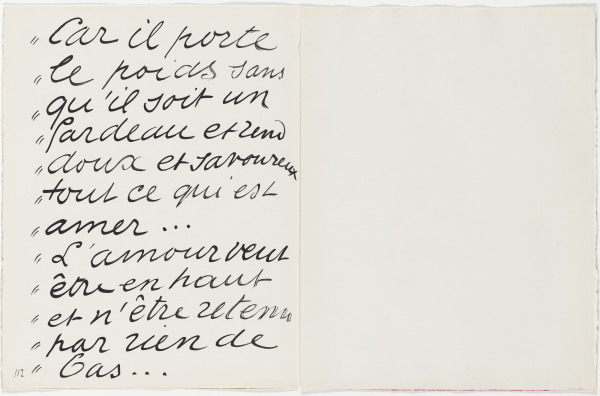 " Car il porte
" le poids sans
" qu'il soit un
" fardeau et rend
" doux et savoureux
" tout ce qui est
" amer...
" L'amour veut
" être en haut
" et n'être retenu
" par rien de
112 " bas...